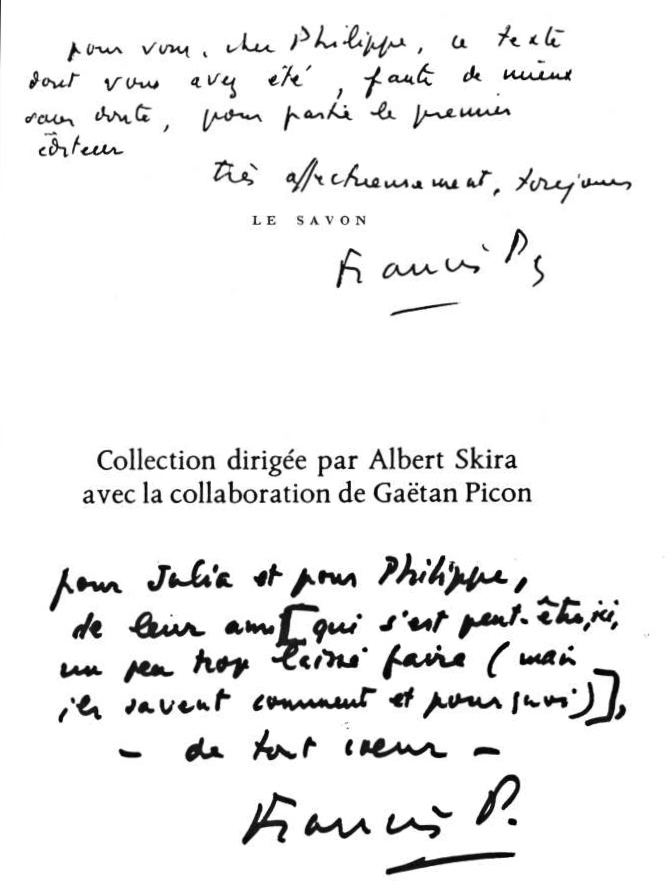 pour vous, cher Philippe, ce texte
dont vous avez été, faute de mieux
sans doute, pour partie le premier
éditeur
très affectueusement, toujours
LE SAVON
Francis P
Collection dirigée par Albert Skira
avec la collaboration de Gaëtan Picon
pour Julia et pour Philippe,
de leur ami [qui s'est peut-être, ici,
un peu trop laissé faire (mais
ils savent comment et pourquoi)],
– de tout coeur –
Francis P.